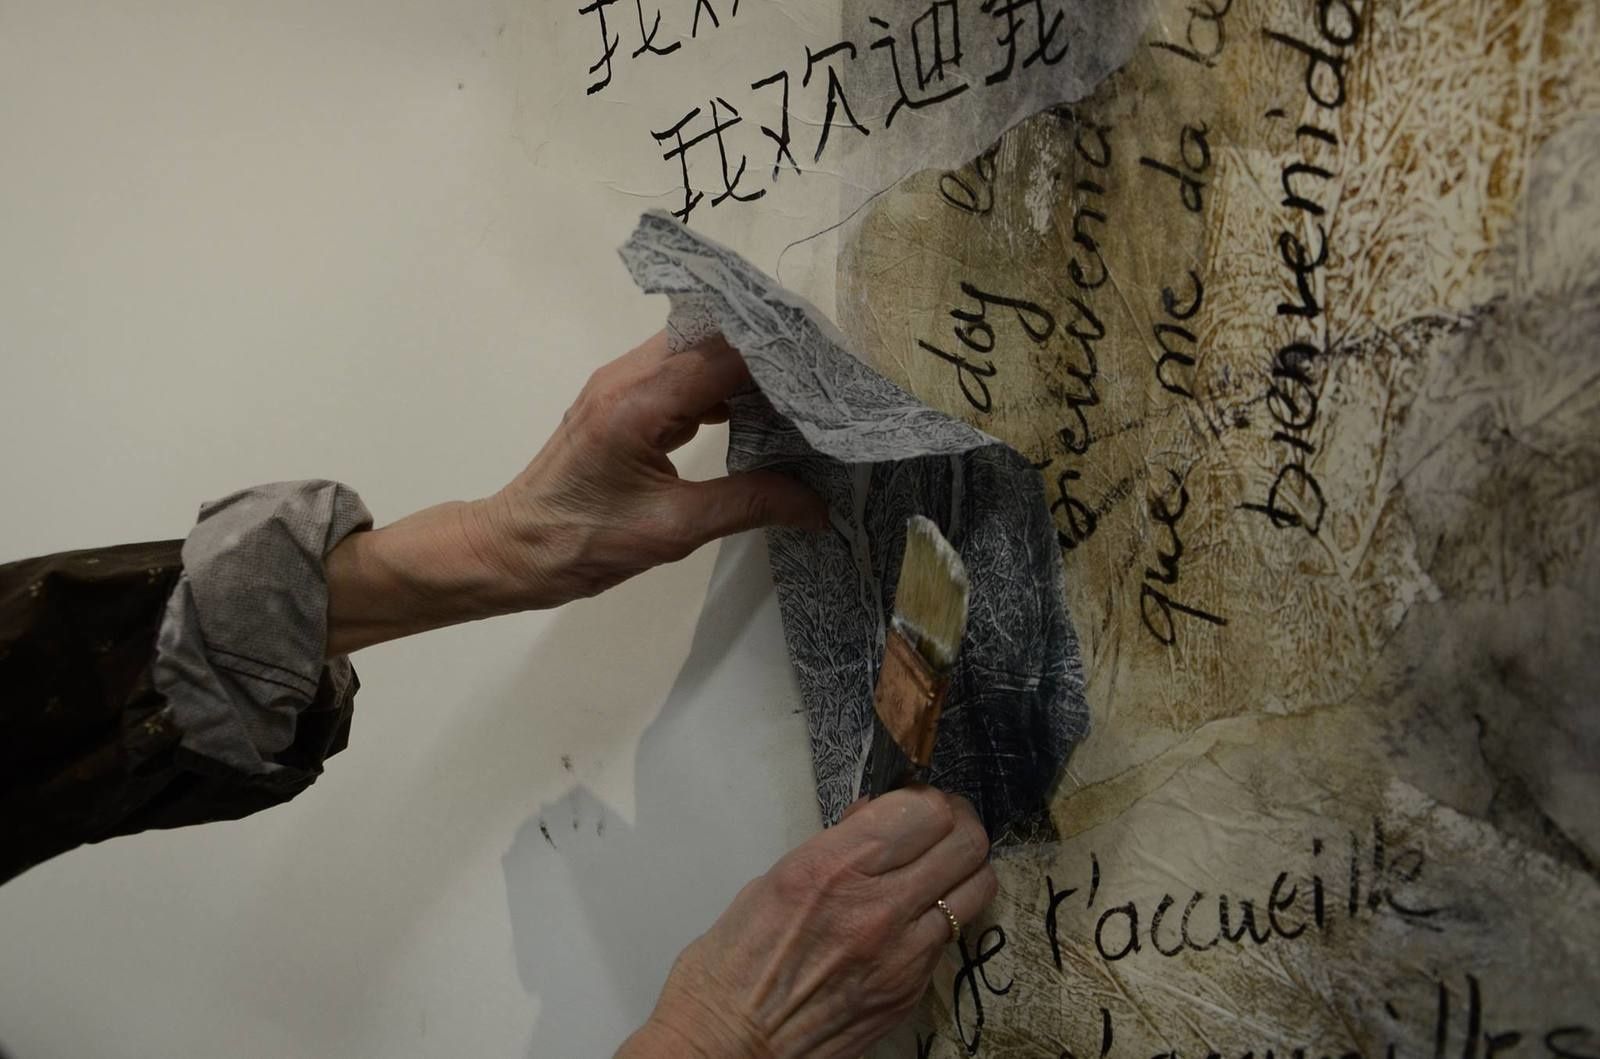 我
我欢迎我
doy la
bienvenida
que me da la
bienvenida
je t'accueille